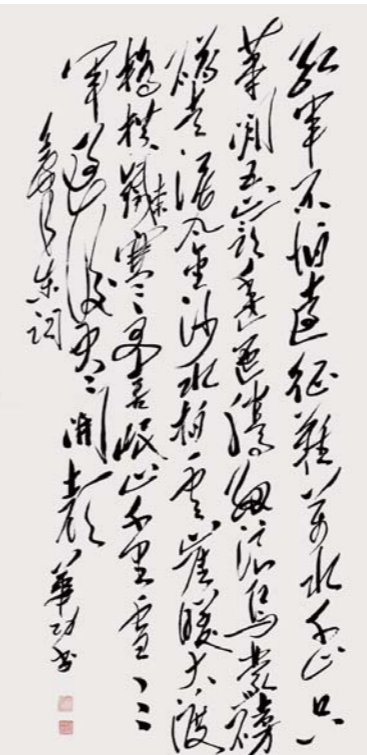 紅軍不怕遠征難萬水千山只
等閑五嶺逶迤騰細浪烏蒙磅
礴走泥丸金沙水拍雲崖暖大渡
橋橫鐵索寒更喜岷山千里雪三
軍過後盡開顏 華功书
东词